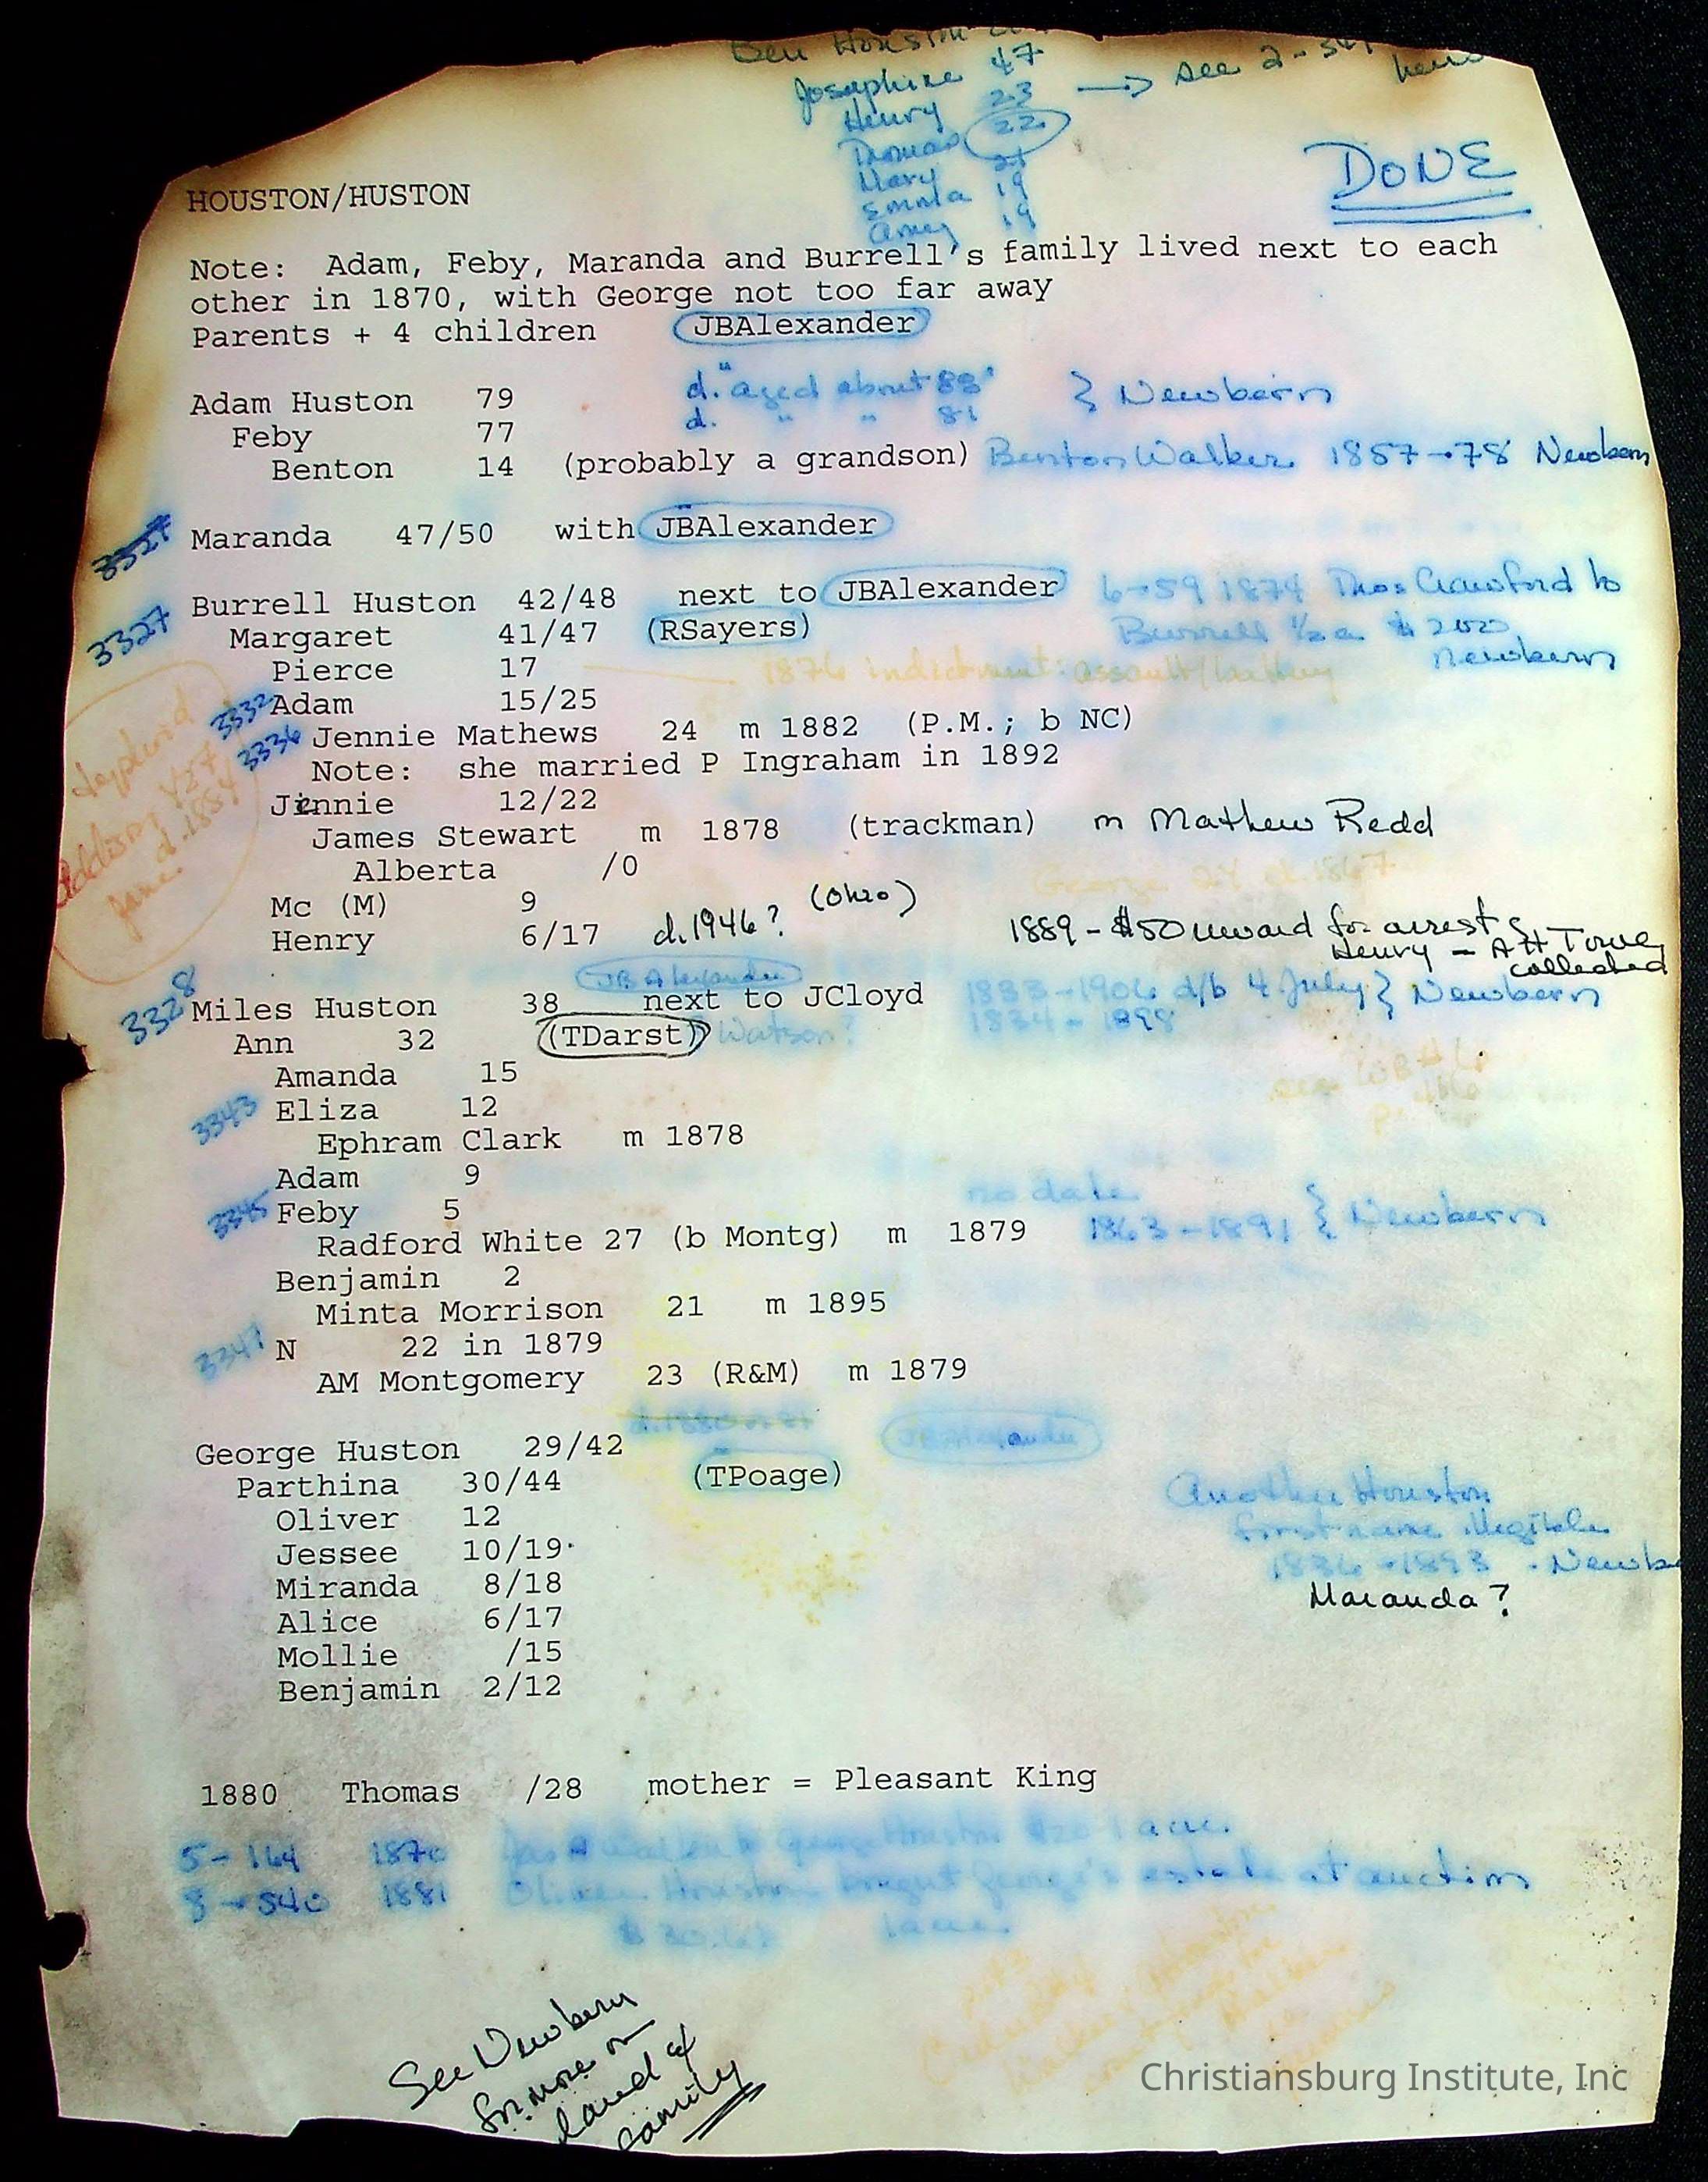 Ben Houston
Josephine 47
Henry 23 → see 2-
Thomas 22
Mary 21
Emma 19
Amey 19
DONE
HOUSTON/HUSTON
Note: Adam, Feby, Maranda and Burrell's family lived next to each
other in 1870, with George not too far away
Parents + 4 children JBAlexander
Adam Huston 79 d. "aged about 88" } Newbern
Feby 77 d. " " 81
Benton 14 (probably a grandson) Benton Walker 1857→78 Newbern
3327
Maranda 47/50 with JBAlexander
3327 Burrell Huston 42/48 next to JBAlexander 6-59 1874 Thos Crawford to
Margaret 41/47 (RSayers) Burrell ½ a $200
Newbern
Pierce 17 1876 indictment: assault/battery
3332 Adam 15/25
3336 Jennie Mathews 24 m 1882 (P.M.; b NC)
Note: she married P Ingraham in 1892
Jennie 12/22
James Stewart m 1878 (trackman) m Mathew Redd
Alberta /0
Addison
Jane d. 1884
George 24 d. 1867
Mc (M) 9 (Ohio)
Henry 6/17 d. 1946? 1889 - $50 reward for arrest of
Henry - A H Towe
collected
JB Alexander
3328 Miles Huston 38 next to JCloyd 1833-1906 d/b 4 July } Newbern
Ann 32 (TDarst) Watson? 1834-1898
Amanda 15
see WB#6
3343 Eliza 12
Ephram Clark m 1878
Adam 9 no date
3345 Feby 5 1863-1891 } Newbern
Radford White 27 (b Montg) m 1879
Benjamin 2
Minta Morrison 21 m 1895
3347 N 22 in 1879
AM Montgomery 23 (R&M) m 1879
JBAlexander
George Huston 29/42
Parthina 30/44 (TPoage)
Oliver 12
Jessee 10/19
Miranda 8/18
Alice 6/17
Mollie /15
Benjamin 2/12
Another Houston
first name illegible
1836-1893 - Newbe
Maranda?
1880 Thomas /28 mother = Pleasant King
5-164 1870 Jas A Walker to George Houston $20 1 acre.
8-540 1881 Oliver Houston bought George's estate at auction
1 acre.
See Newbern
for more on
land of
family
Christiansburg Institute, Inc